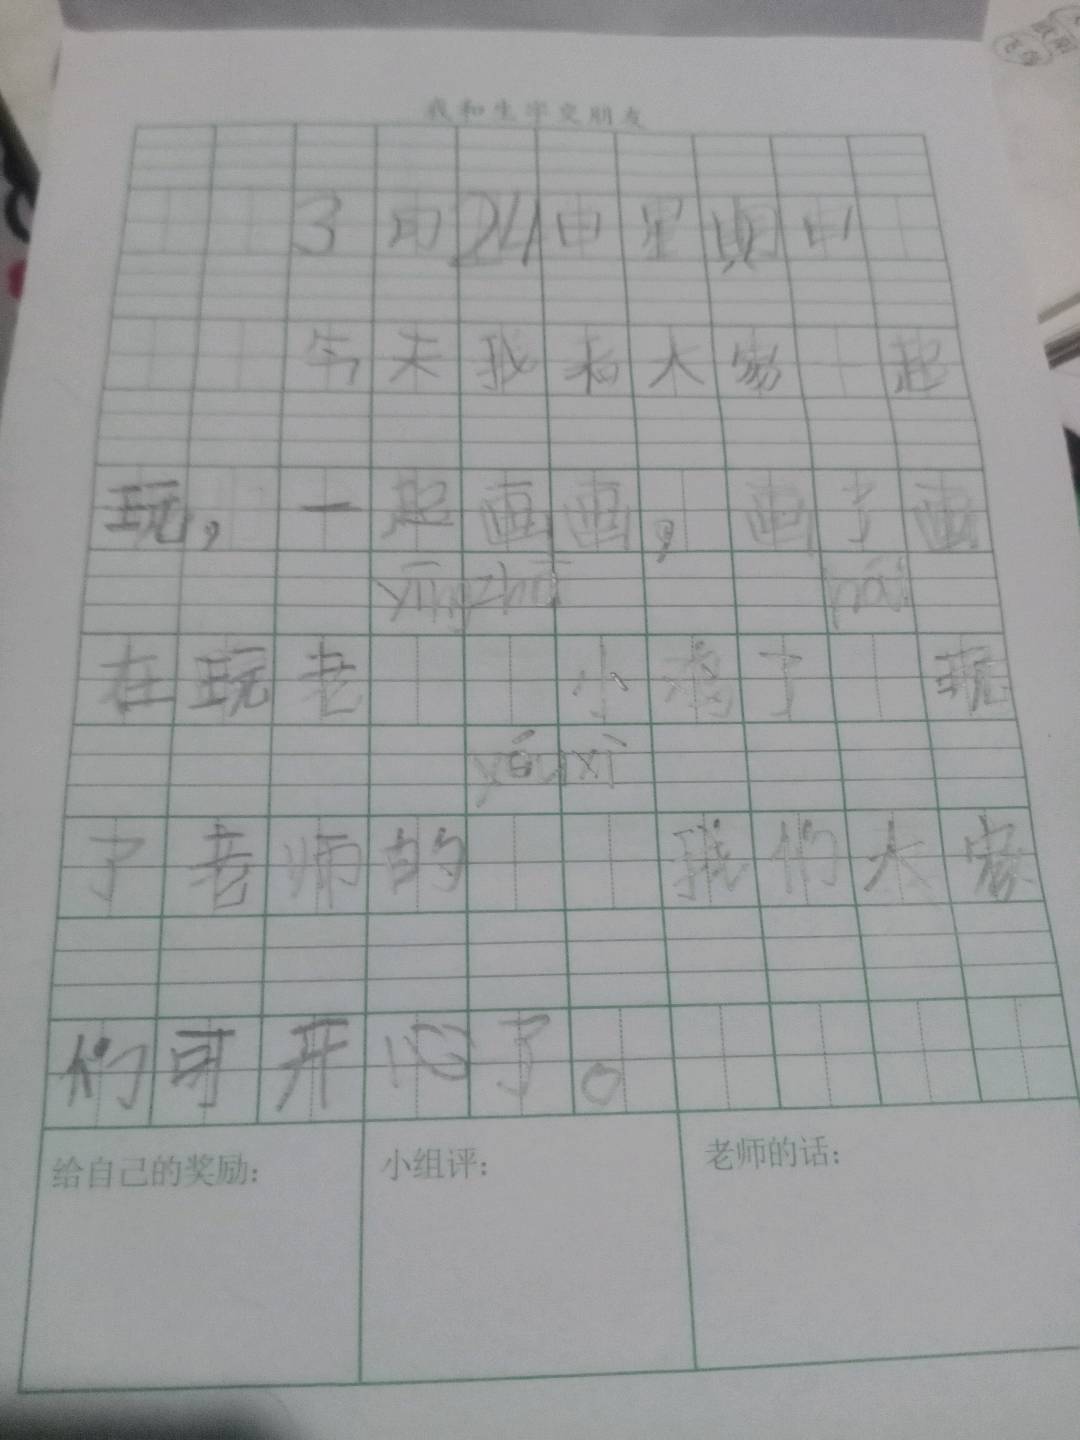 我和生字交朋友
3 24 星期
我和大家 起
玩，一起画画，画了画
yīng zhā hái
在玩老 小鸡了 玩
yóu xì
了老师的 我们大家
们可开心了。
给自己的奖励：
小组评：
老师的话：